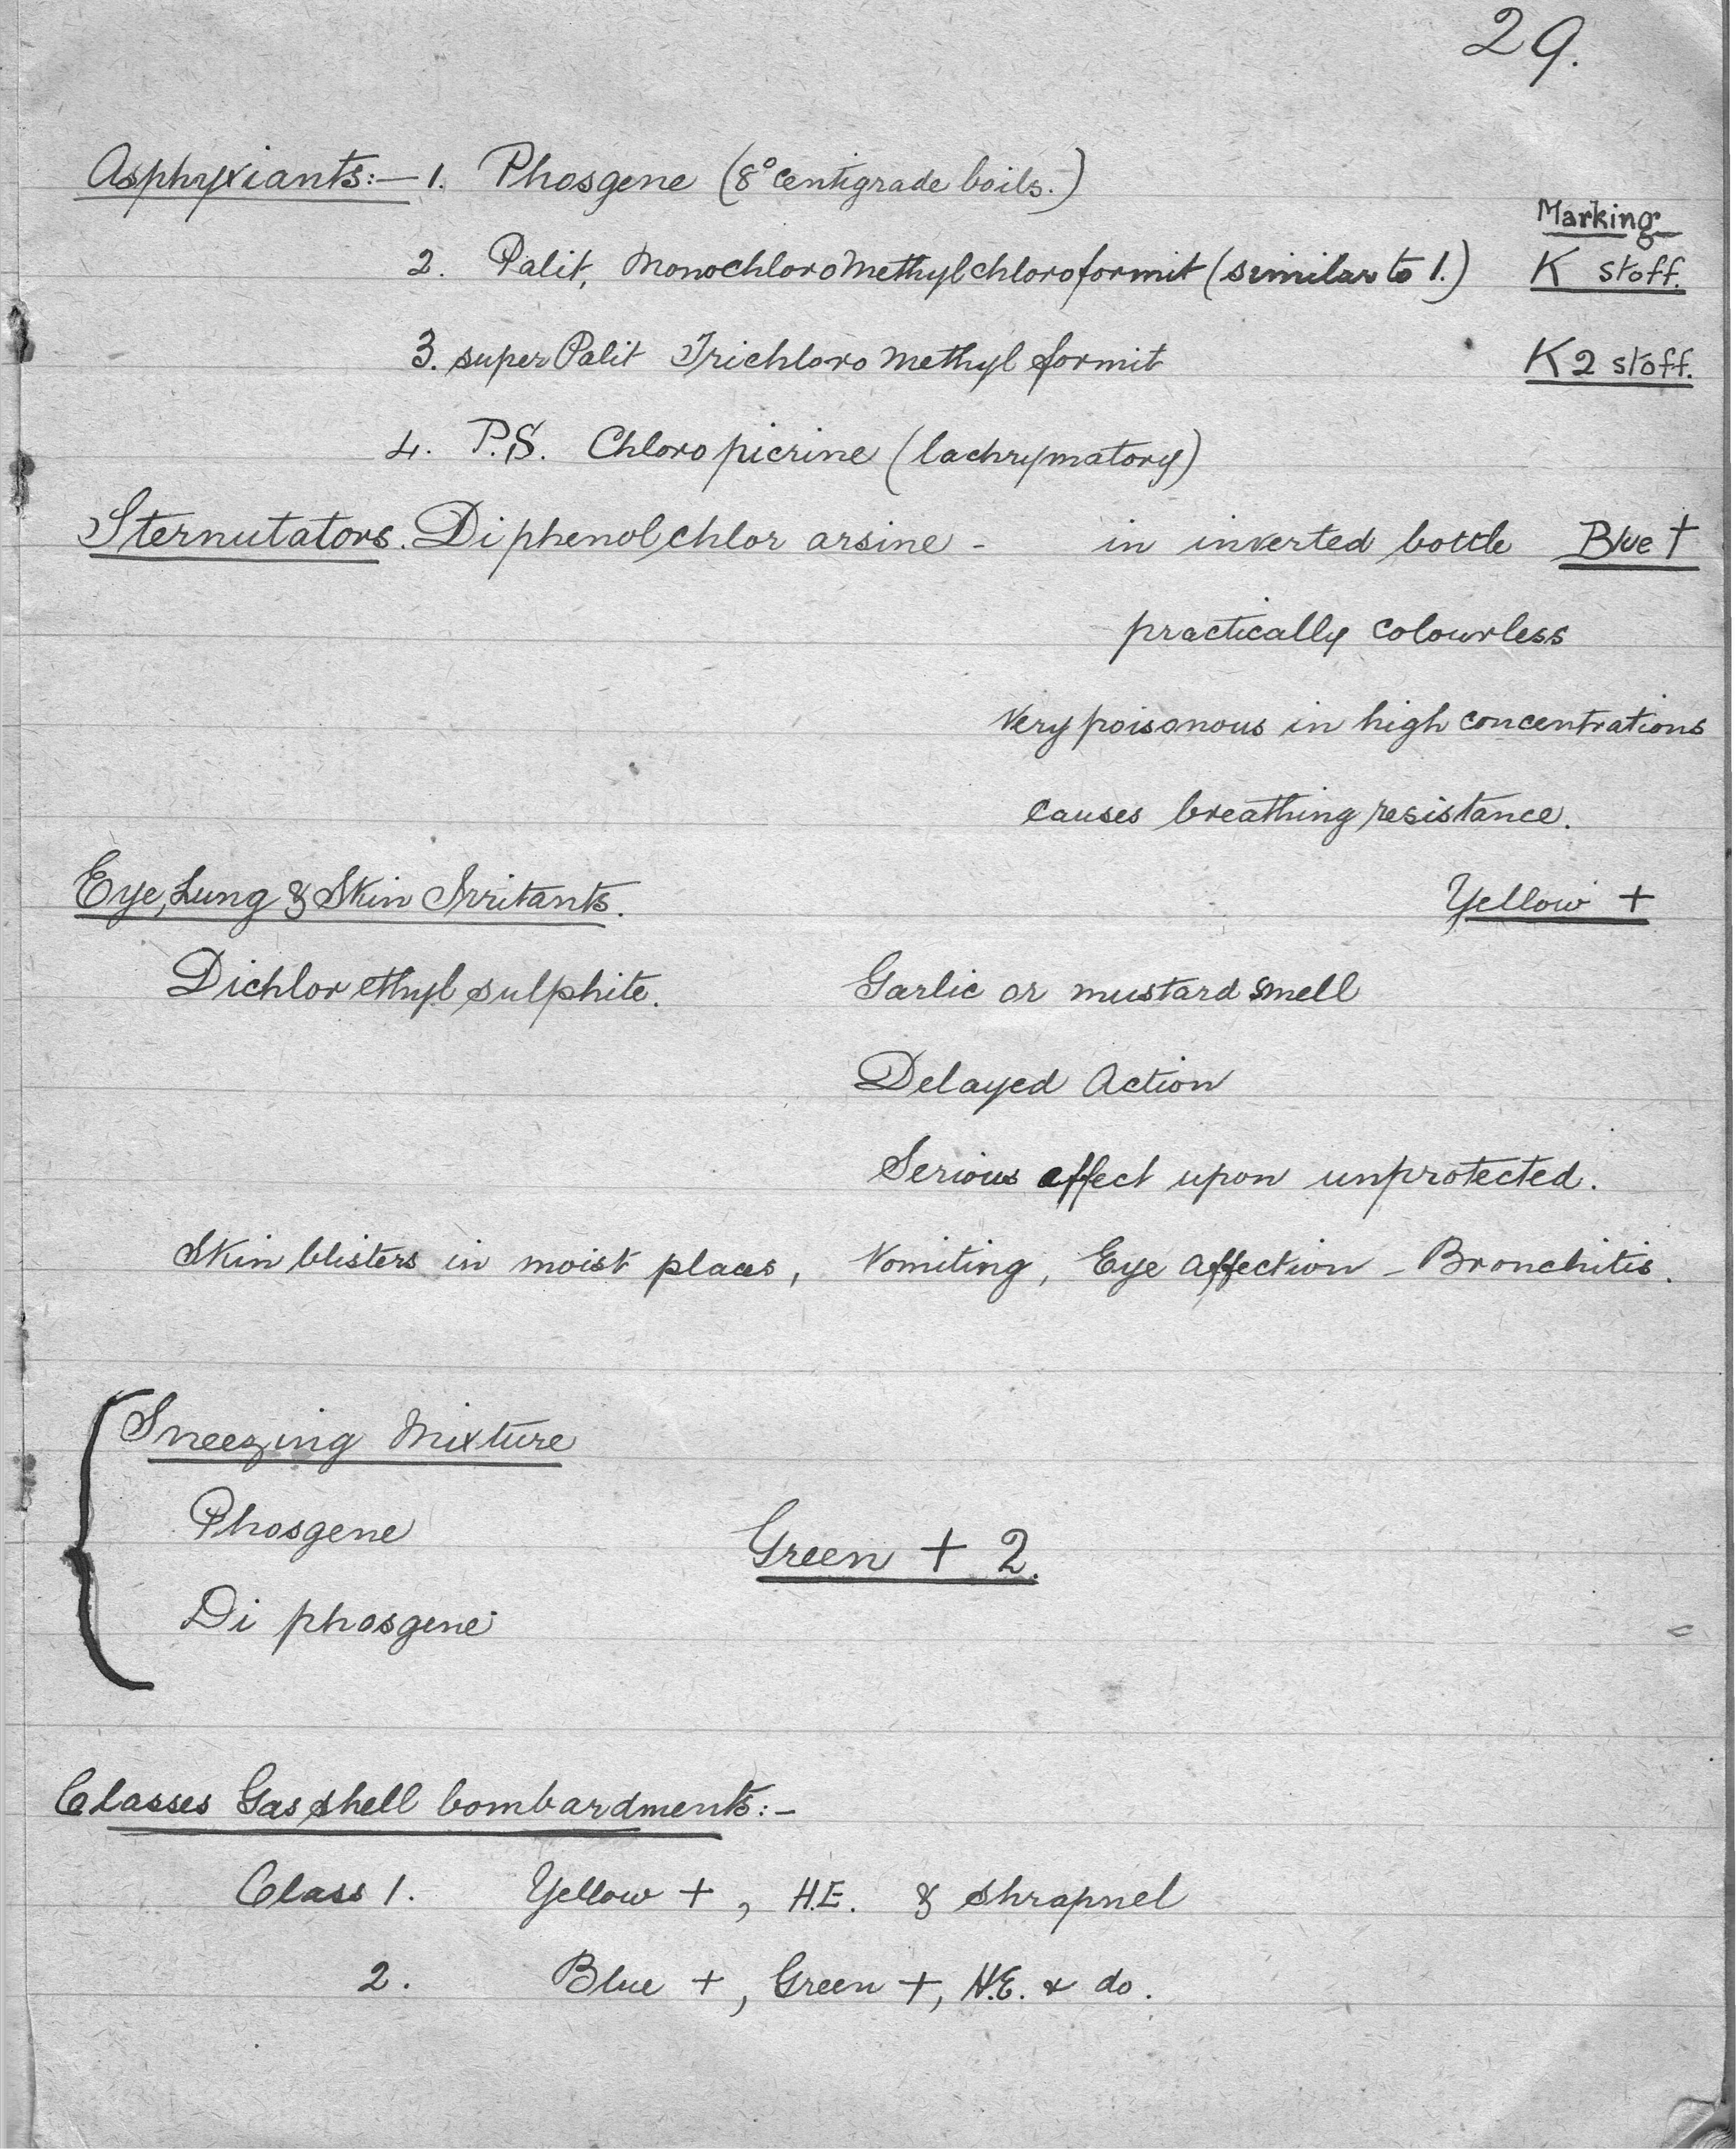 29.
Asphyxiants:- 1. Phosgene (8° centigrade boils.)
Marking
2. Palit, Monochloromethylchloroformit (similar to 1.) K stoff.
3. super Palit Trichloro methyl formit K2 stoff.
4. P.S. Chloropicrine (lachrymatory)
Sternutators. Diphenolchlor arsine - in inverted bottle Blue +
practically colourless
Very poisonous in high concentrations
causes breathing resistance.
Eye, Lung & Skin Irritants. Yellow +
Dichlor ethyl sulphite. Garlic or mustard smell
Delayed Action
Serious effect upon unprotected.
Skin blisters in moist places, Vomiting, Eye affection - Bronchitis.
Sneezing Mixture
Phosgene
Green + 2.
Di phosgene
Classes Gas shell bombardments:-
Class 1. Yellow +, H.E. & shrapnel
2. Blue +, Green +, H.E. & do.